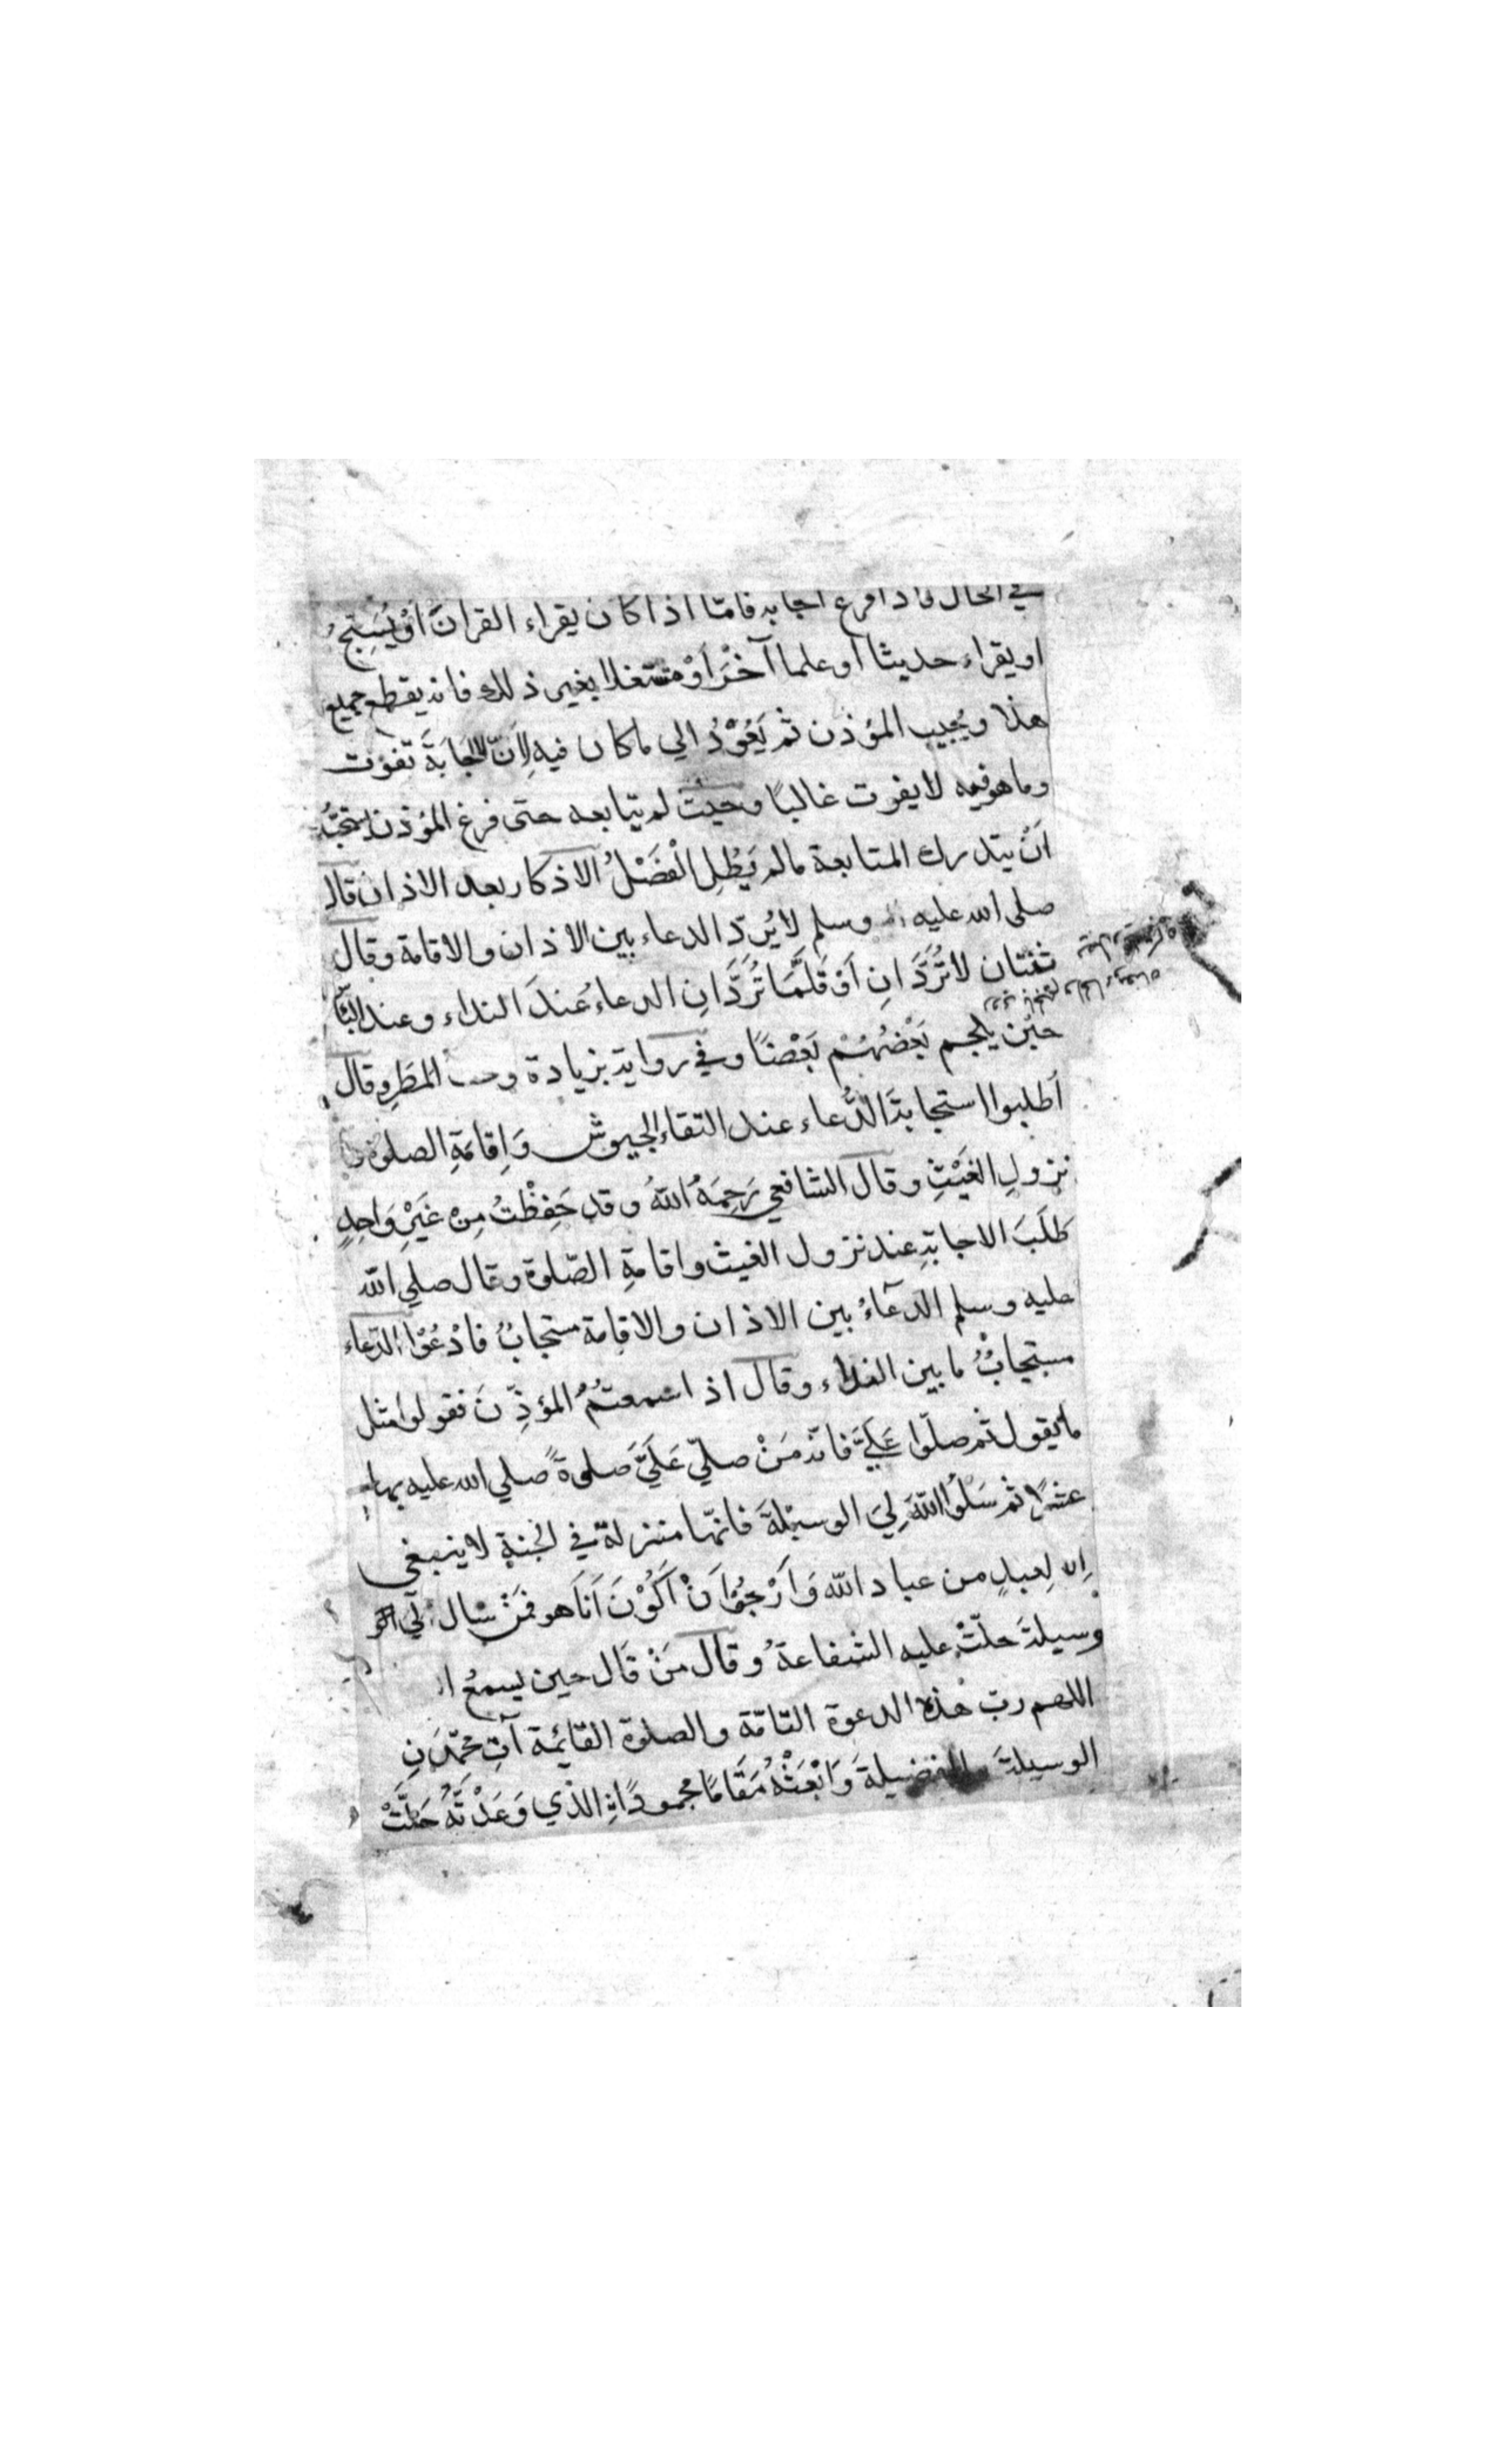 في الحال فاذا فرغ اجابه فامّا اذا كان يقراء القرانَ اَوْ يُسَبِّحُ
او يقراء حديثا او علما آخَرَ اَوْ متشغلا بغير ذلك فانه يقطع جميع
هذا ويُجيب المؤذن ثم يَعُوْدُ الي ما كان فيه لِاَنّ الاجَابَةَ تفوت
وما هو فيه لا يفوت غالبًا وحيث لم يتابعه حتى فرغ المؤذن استحبُّ
اَنْ يتدرك المتابعة ما لم يَطُلِ الْفَصْلُ الاذكار بعد الاذان قال
صلى الله عليه وسلم لا يُردّ الدعاء بين الاذان والاقامة وقال
ثنتان لا تُرَدَّانِ اَوْ قَلَّمَا تُرَدَّانِ الدعاءُ عندَ النداء وعند البَأ
حين يلحم بَعْضُهُمْ بَعْضًا وفي رواية بزيادة وحت المطَرِ وقال
اُطلبوا استجابةَ الدُّعاء عند التقاء الجيوش وَاِقامَةِ الصلوة و
نزولِ الغَيْثِ وقال الشافعي رَحِمَهُ اللّٰهُ وقد حَفِظْتُ مِنْ غَيْرِ وَاحِدٍ
طَلَبَ الاجابةِ عند نزول الغيث واقامةِ الصّلوة وقال صلي الله
عليه وسلم الدعآءُ بين الاذان والاقامة مستجابٌ فادْعُوْا الدّعاء
مستجابٌ ما بين النداء وقال اذا سمعتُمُ المؤذِّنَ فقولوا مثل
ما يقول ثم صلّوا عَلَيَّ فانه مَنْ صلّي عَلَيَّ صلوةً صلي الله عليه بها
عشرًا ثم سَلُوا اللّٰهَ لِيَ الوسيْلَةَ فانّها منزلة في الجنةِ لا ينبغي
اِلا لِعبدٍ من عباد الله وَاَرْجُوْا اَنْ اَكُوْنَ اَنَا هو فَمَنْ سَال لي الو
وسيلةَ حلّتْ عليه الشفاعةُ وقال مَنْ قَال حين يسمعُ
اللهم ربّ هٰذه الدعوة التامّة والصلوة القائمة آتِ محمّدَنِ
الوسيلةَ والفضيلةَ وَابْعَثْهُ مَقَامًا محمودًا نِ الذي وَعَدْتَّهُ حَلَّتْ